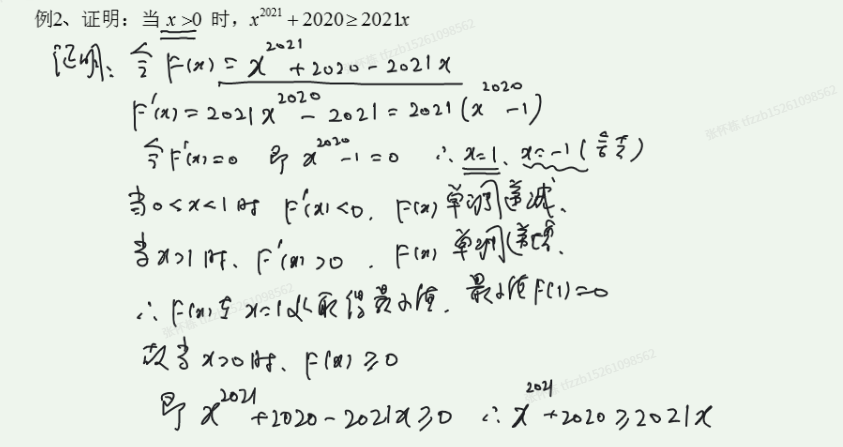 例2、证明：当 x >0 时，x²⁰²¹ + 2020 ≥ 2021x
证明：令 F(x) = x²⁰²¹ + 2020 - 2021x
F'(x) = 2021x²⁰²⁰ - 2021 = 2021(x²⁰²⁰ - 1)
令F'(x)=0 即 x²⁰²⁰-1=0 ∴ x=1、x=-1(舍去)
当0<x<1时 F'(x)<0. F(x)单调递减、
当x>1时、F'(x)>0 . F(x)单调递增.
∴ F(x)在x=1处取得最小值. 最小值F(1)=0
故当x>0时、F(x)≥0
即 x²⁰²¹+2020-2021x≥0 ∴ x²⁰²¹+2020≥2021x
张怀栋 tfzzb15261098562